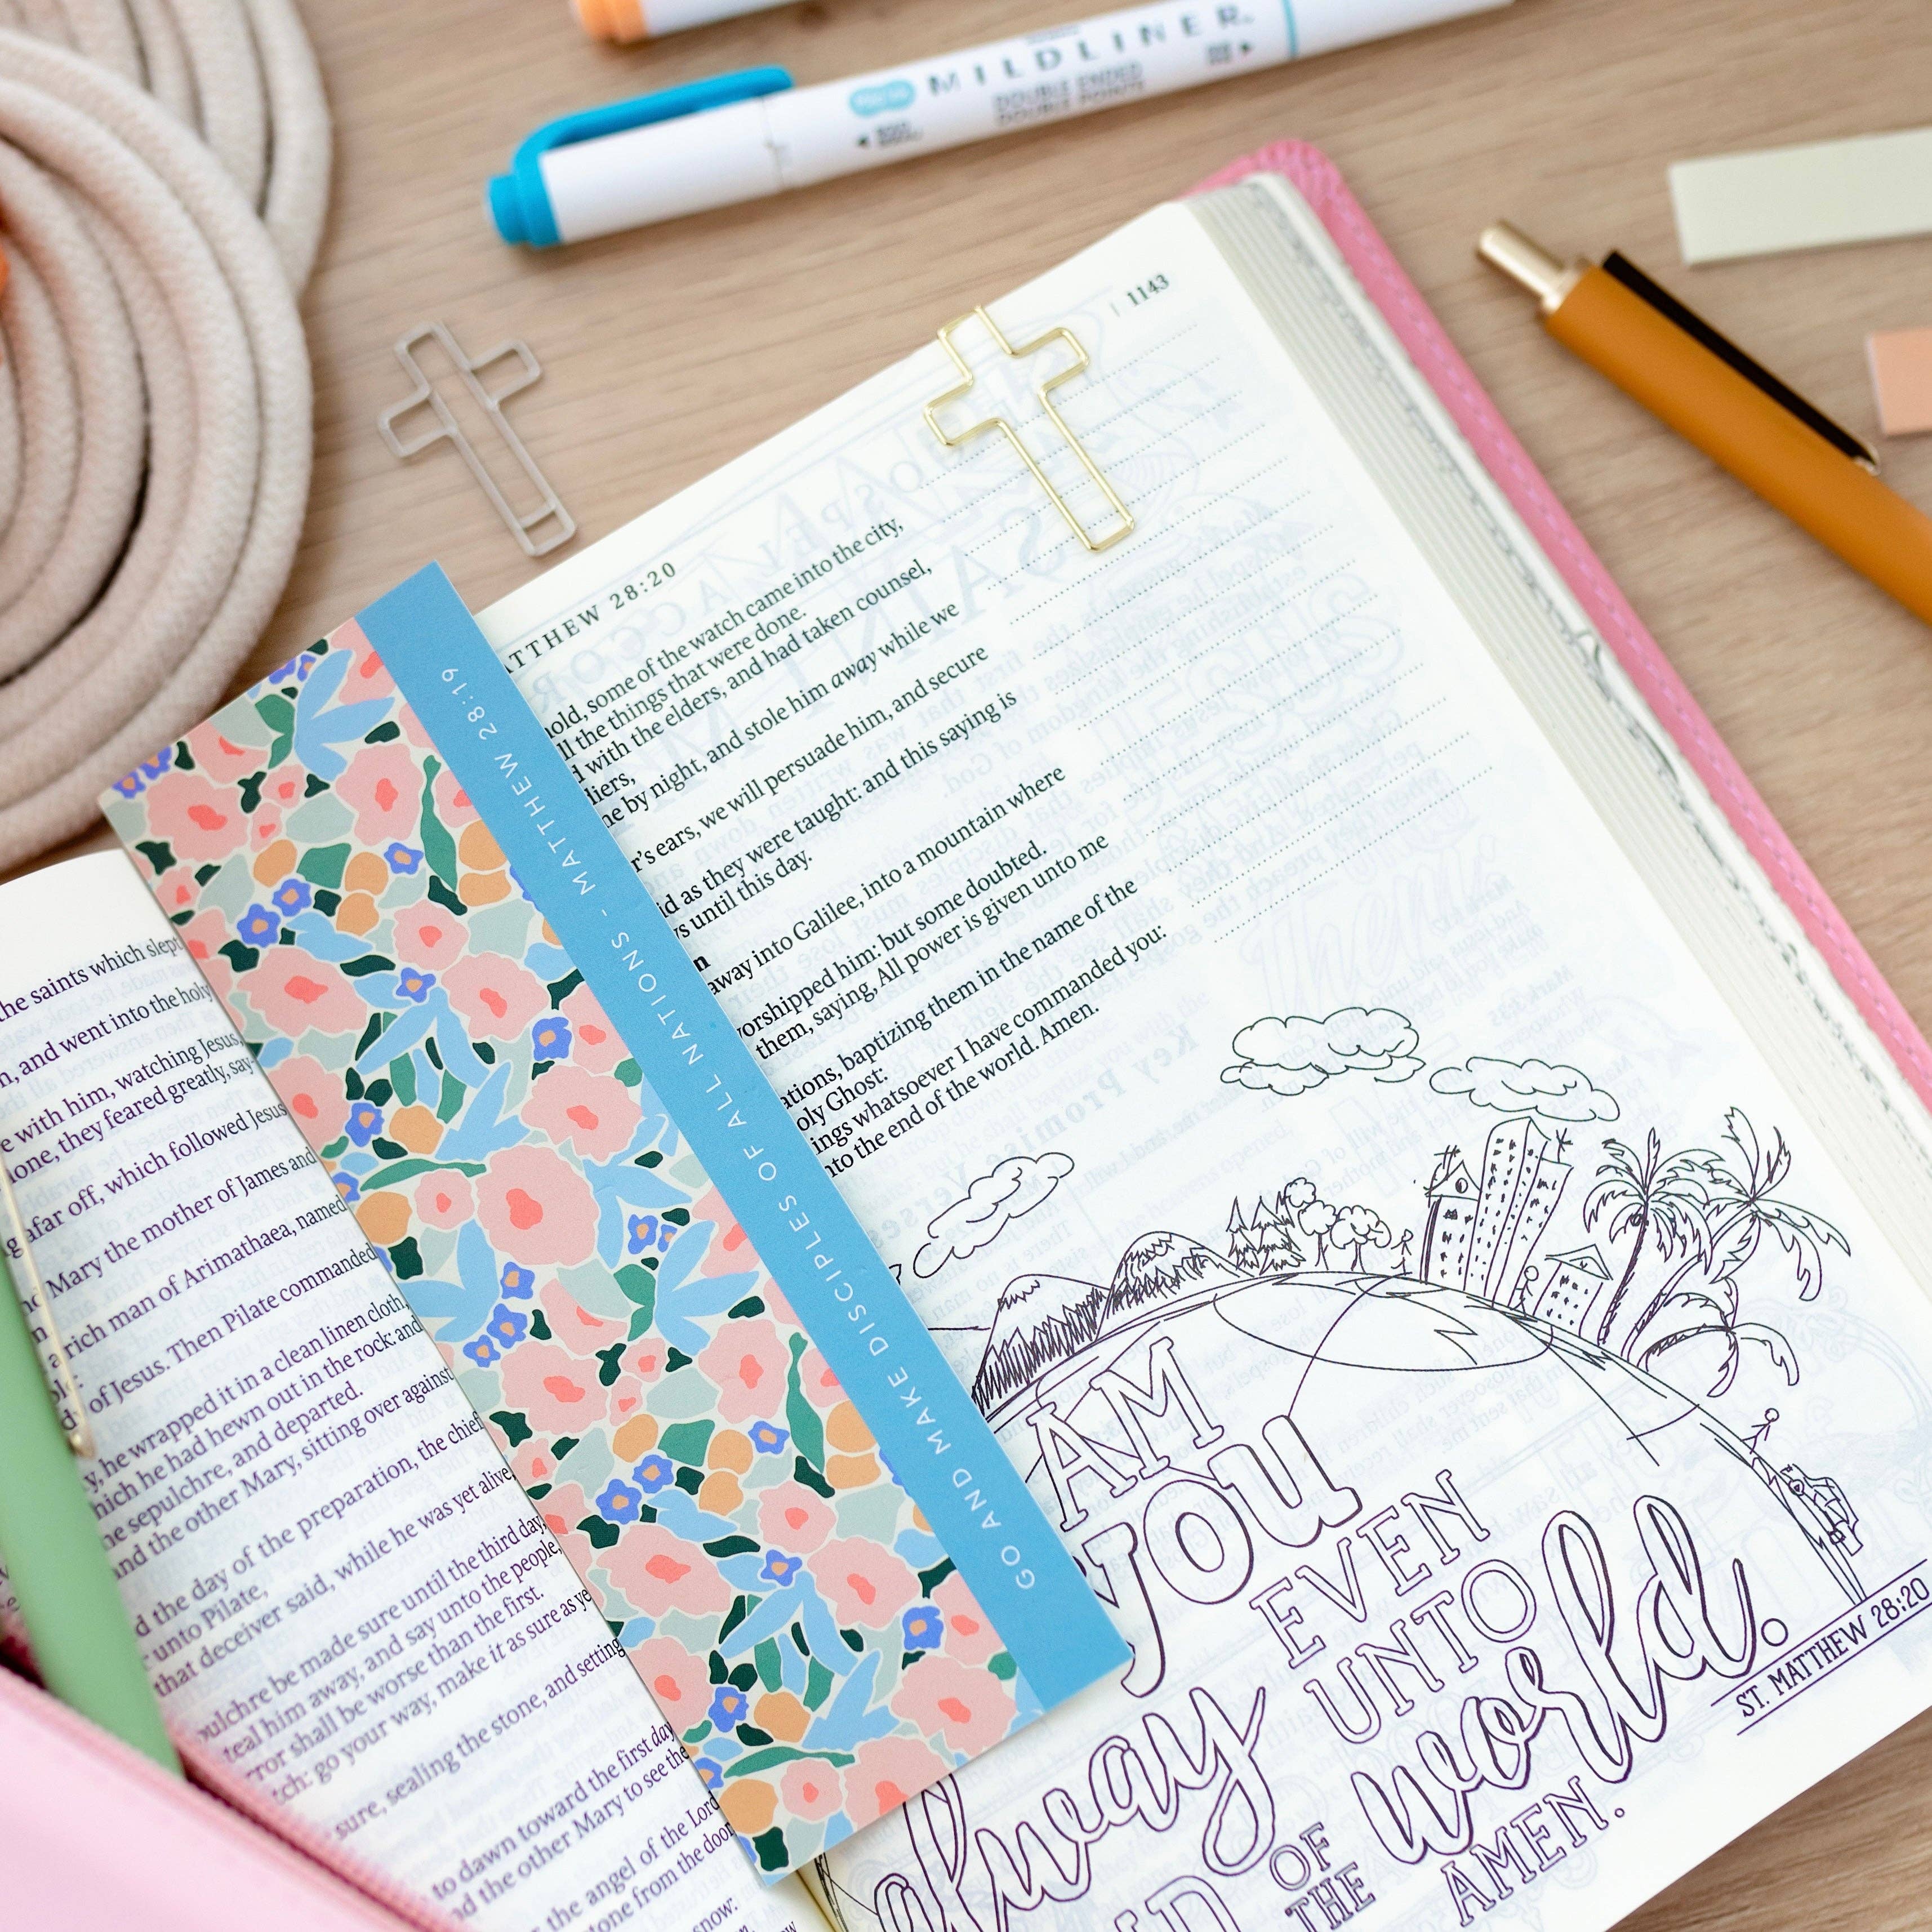 MILDLINER.
DOUBLE ENDED
DOUBLE POINTS
1143
ATTHEW 28:20
GO AND MAKE DISCIPLES OF ALL NATIONS - MATTHEW 28:19
the saints which slept
n, and went into the holy
e with him, watching Jesus,
one, they feared greatly, say-
afar off, which followed Jesus
Mary the mother of James and
a rich man of Arimathaea, named
of Jesus. Then Pilate commanded
y, he wrapped it in a clean linen cloth,
hich he had hewn out in the rock: and
he sepulchre, and departed.
and the other Mary, sitting over against
d the day of the preparation, the chief
unto Pilate,
that deceiver said, while he was yet alive,
pulchre be made sure until the third day,
teal him away, and say unto the people,
rror shall be worse than the first.
tch: go your way, make it as sure as ye
sure, sealing the stone, and setting
to dawn toward the first day
nd the other Mary to see the
the angel of the Lord
tone from the door
snow:
hold, some of the watch came into the city,
ll the things that were done.
d with the elders, and had taken counsel,
liers,
ne by night, and stole him away while we
r's ears, we will persuade him, and secure
id as they were taught: and this saying is
ys until this day.
away into Galilee, into a mountain where
vorshipped him: but some doubted.
them, saying, All power is given unto me
ations, baptizing them in the name of the
oly Ghost:
ings whatsoever I have commanded you:
nto the end of the world. Amen.
AM
YOU
alway
EVEN
UNTO
OF
THE
world.
AMEN.
ST. MATTHEW 28:20